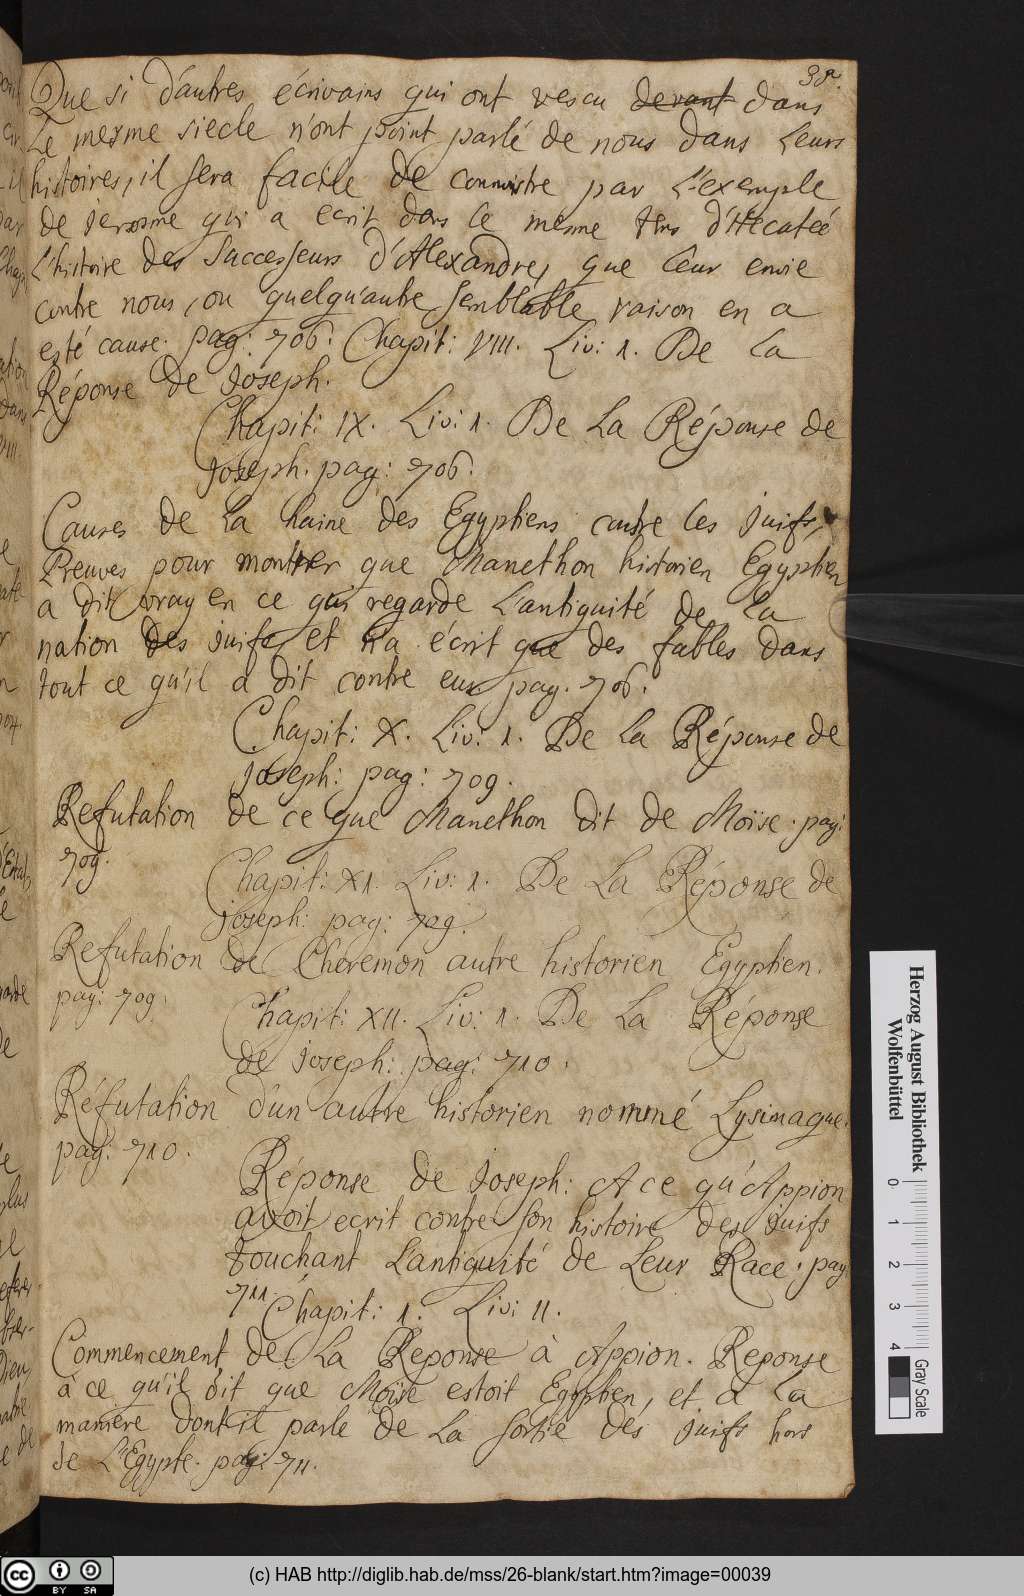 38.
Que si d'autres écrivains qui ont vescu devant dans
Le mesme siecle n'ont point parlé de nous dans Leurs
histoires, il sera facile de connoistre par L'exemple
de jerosme qui a ecrit dans le mesme tems d'Hecateé
L'histoire des Successeurs d'Alexandre, que leur envie
contre nous, ou quelqu'autre semblable raison en a
esté cause. pag: 706. Chapit: VIII. Liv: 1. De La
Réponse de Joseph.
Chapit: IX. Liv: 1. De La Réponse de
Joseph. pag: 706.
Causes de La haine des Egyptiens contre les juifs,
Preuves pour montrer que Manethon historien Egyptien
a dit vray en ce qui regarde L'antiquité de La
nation des juifs, et n'a écrit que des fables dans
tout ce qu'il a dit contre eux pag. 706.
Chapit: X. Liv: 1. De La Réponse de
Joseph: pag: 709.
Refutation de ce que Manethon dit de Moïse. pag:
709.
Chapit: XI. Liv: 1. De La Réponse de
joseph: pag: 709.
Refutation de Cheremon autre historien Egyptien.
pag: 709.
Chapit: XII. Liv: 1. De La Réponse
de joseph: pag: 710.
Réfutation d'un autre historien nommé Lysimaque.
pag: 710.
Reponse de Joseph: A ce qu'Appion
avoit ecrit contre son histoire des juifs
touchant L'antiquité de Leur Race. pag:
711.
Chapit: 1. Liv: II.
Commencement de La Reponse à Appion. Reponse
à ce qu'il dit que Moïse estoit Egyptien, et a La
maniere dont il parle de La sortie des juifs hors
de L'Egypte. pag: 711.
Herzog August Bibliothek
Wolfenbüttel
0 1 2 3 4
Gray Scale
cc BY SA
(c) HAB http://diglib.hab.de/mss/26-blank/start.htm?image=00039